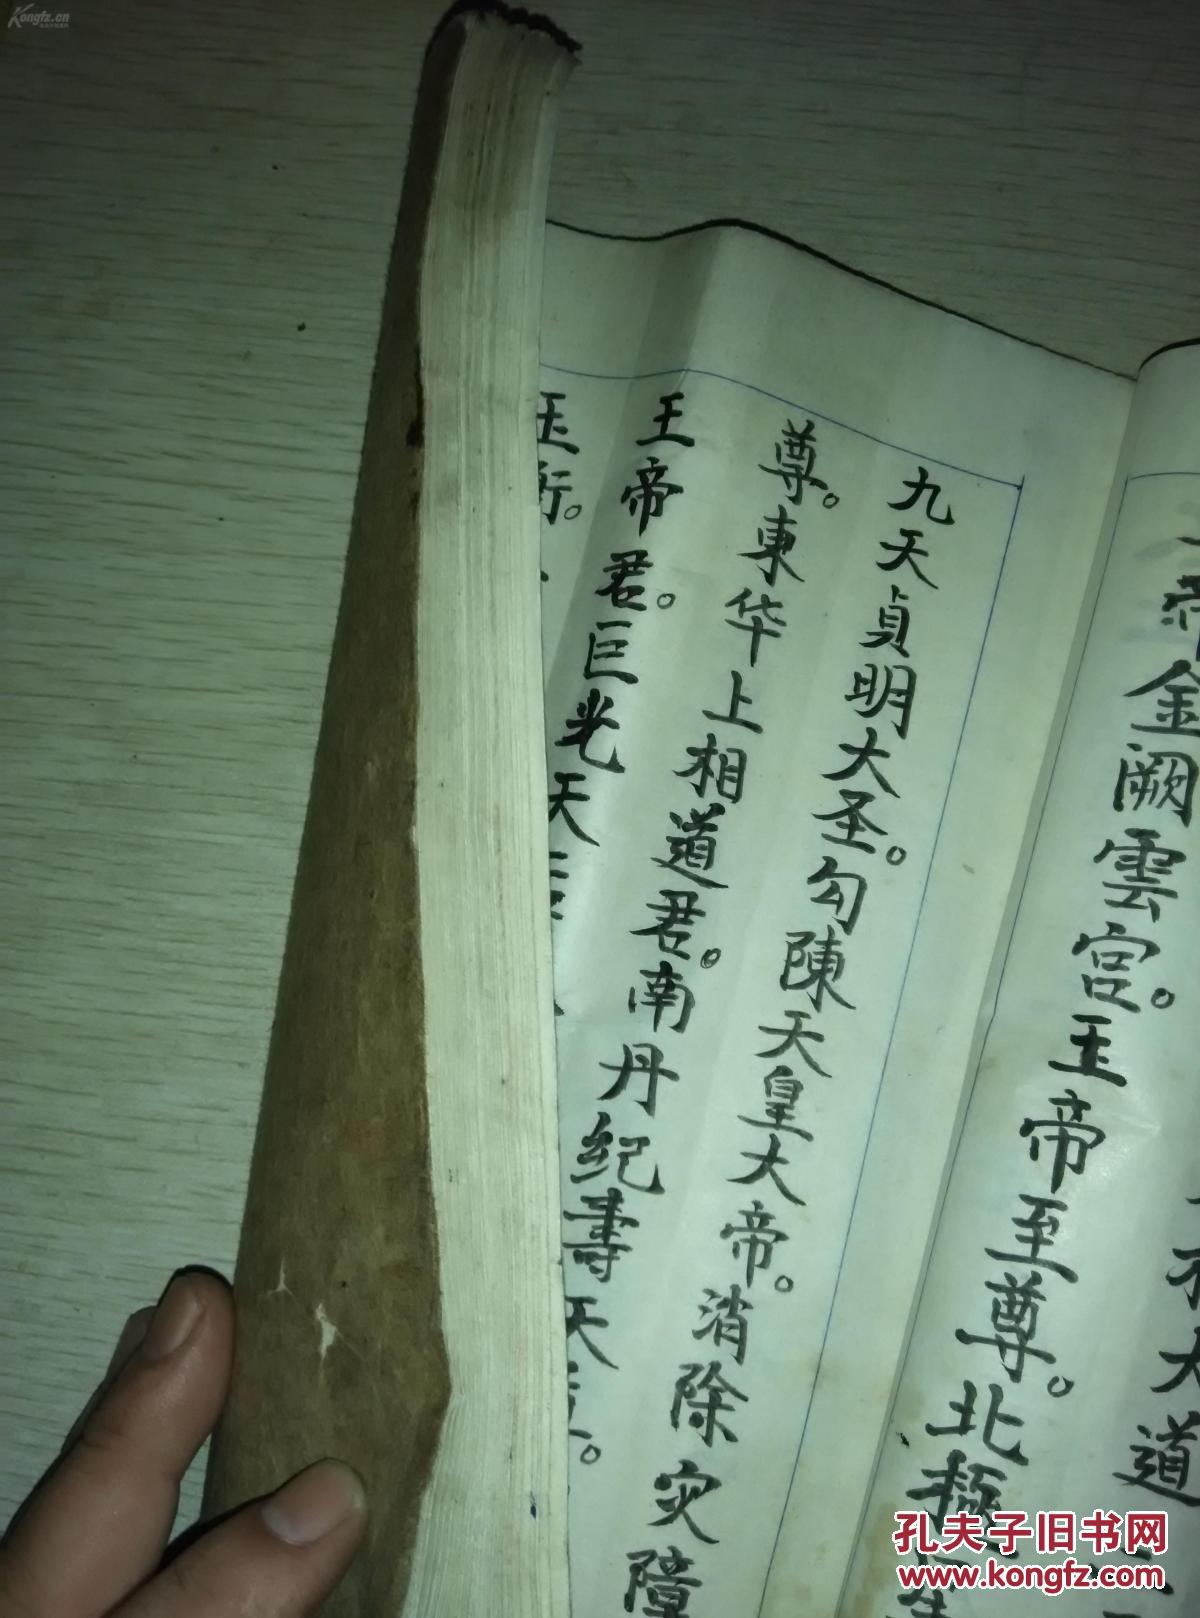 Kongfz.cn
大道
金阙雲宫。玉帝至尊。北極
九天貞明大圣。勾陳天皇大帝。消除灾障
尊。東华上相道君。南丹纪壽天
王帝君。巨光天
玉衡。
孔夫子旧书网
www.kongfz.com